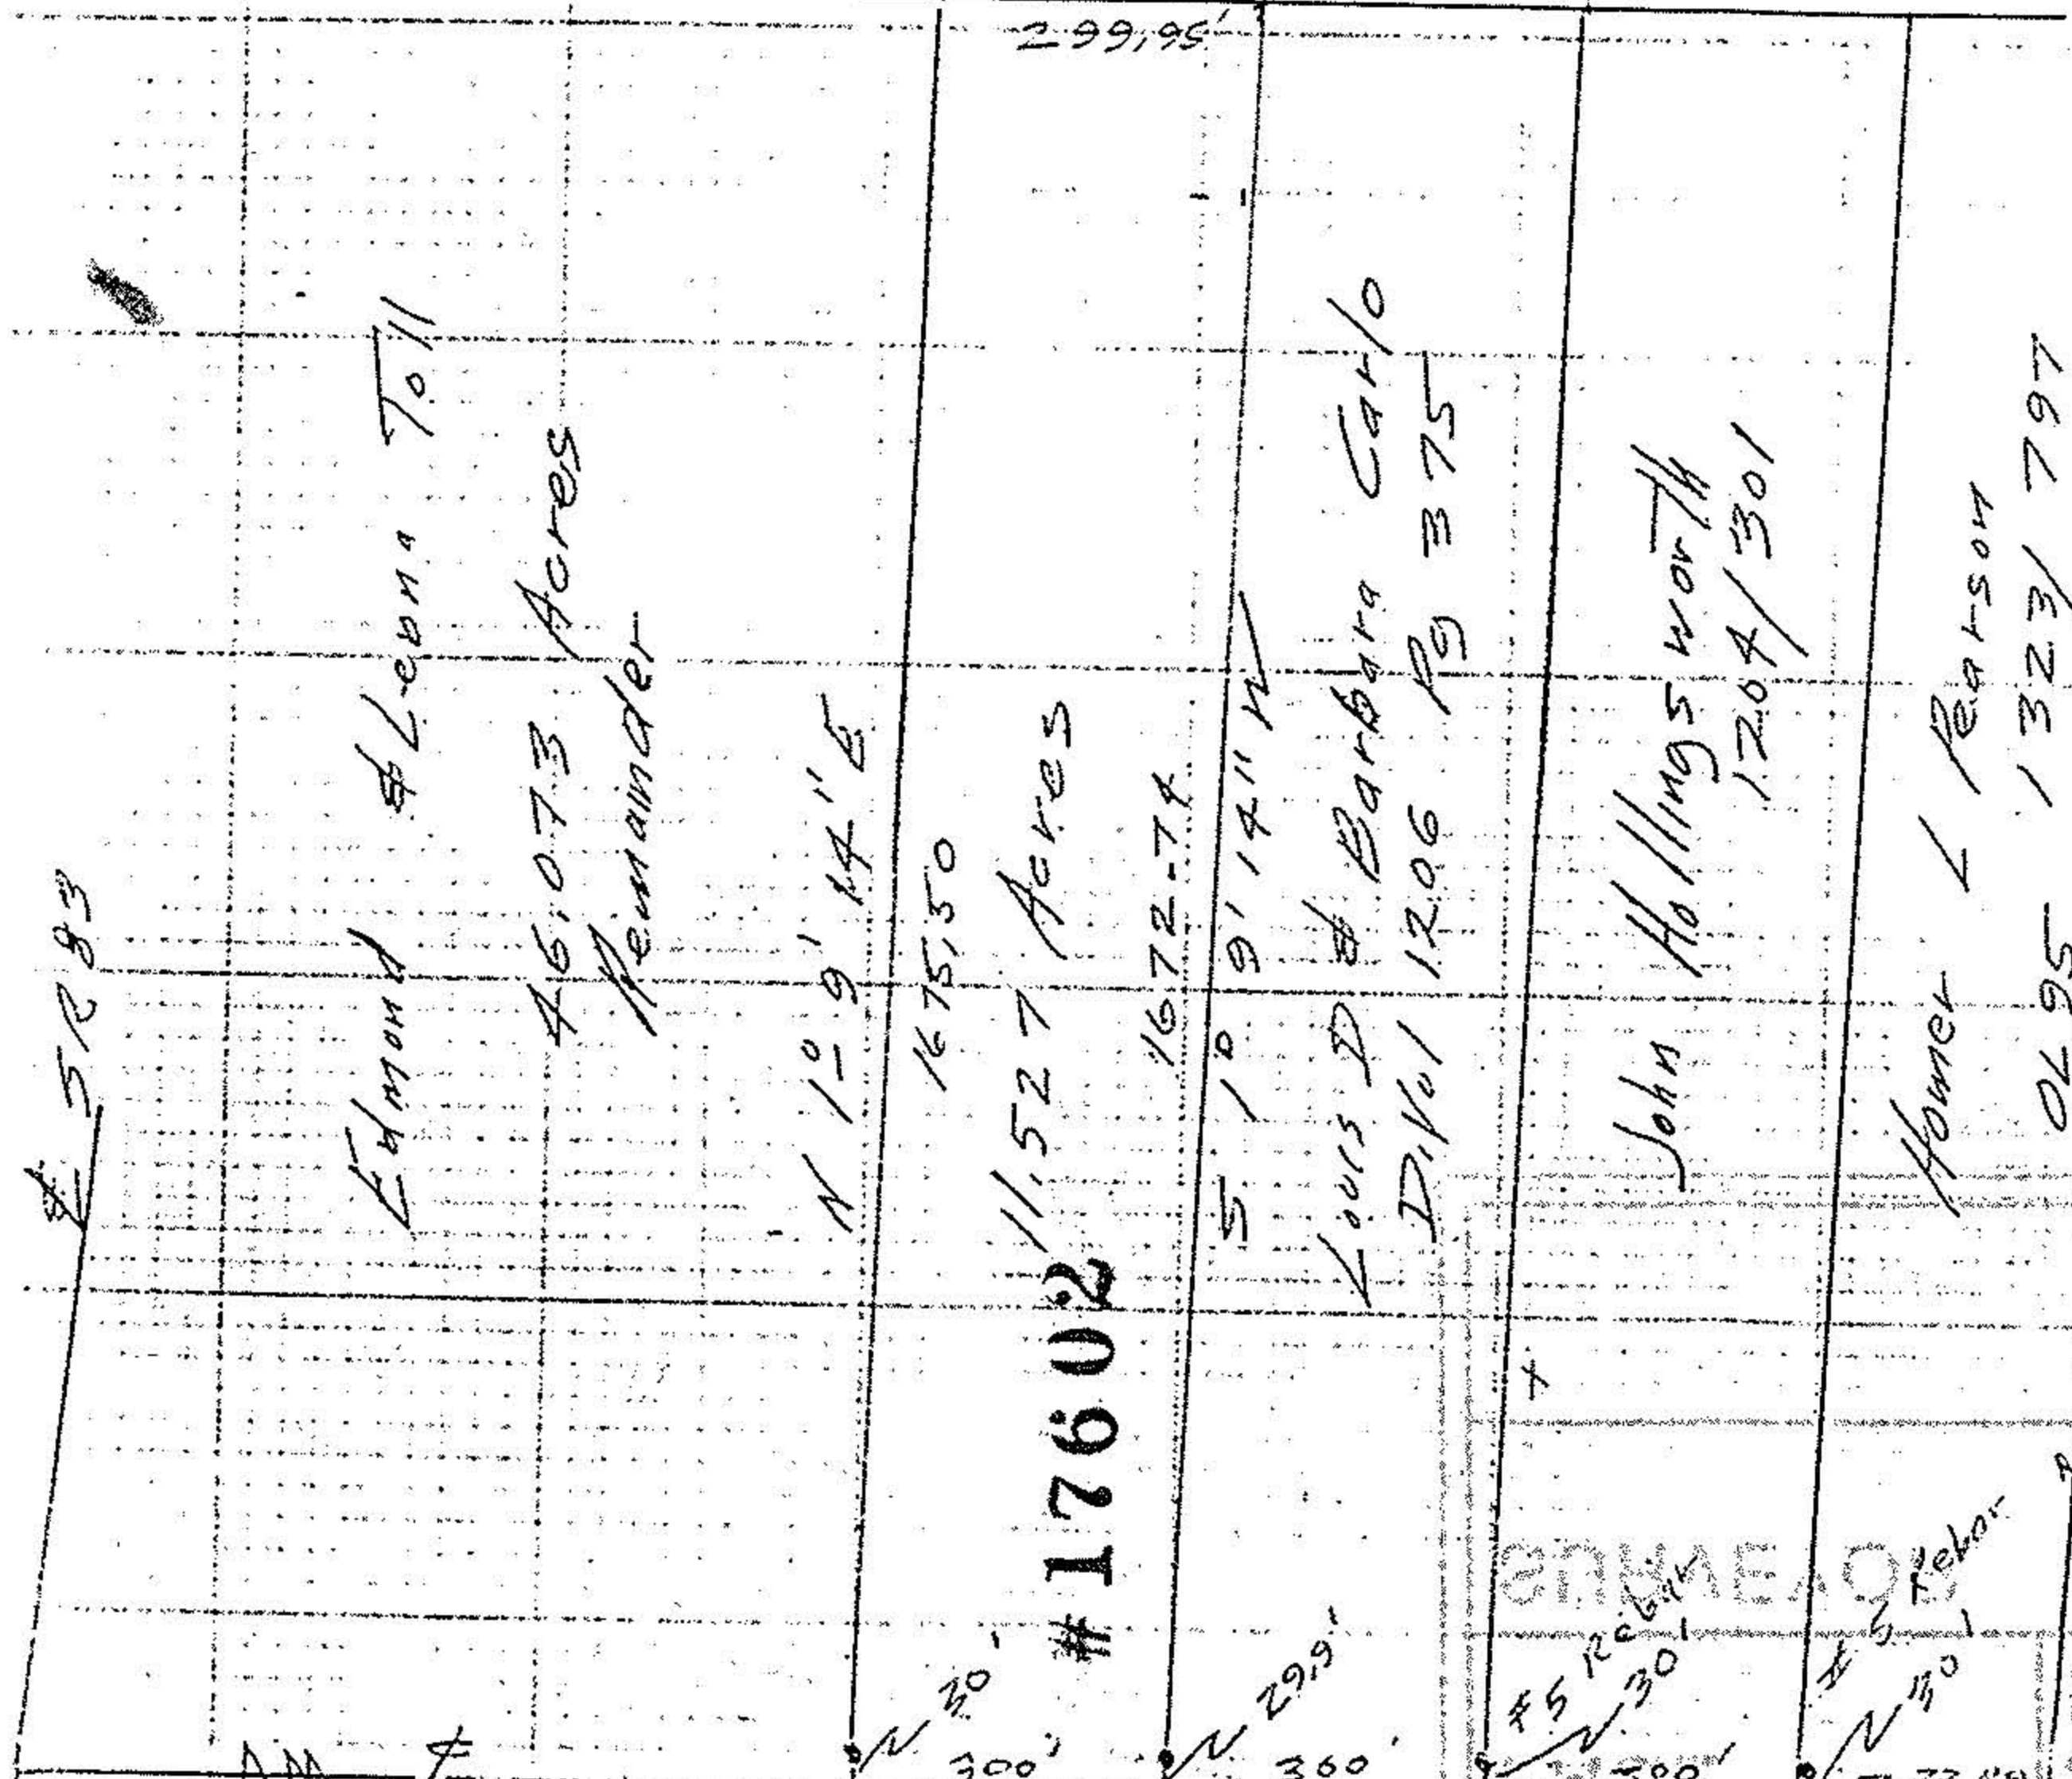 299.95'
℄ SR 83
Edmond & Leona Toll
46.073 Acres
Remainder
N 1° 9' 14" E
1675.50
11.527 Acres
#17602
1672.74
S 1° 9' 14" W
Louis D & Barbara Carlo
D. Vol 1206 Pg 375
John Hollingsworth
1204/301
Homer L Pearson
OL 95 1323/797
30'
300'
29.9'
300'
#5 Rebar
30'
300'
#5 Rebar
30'